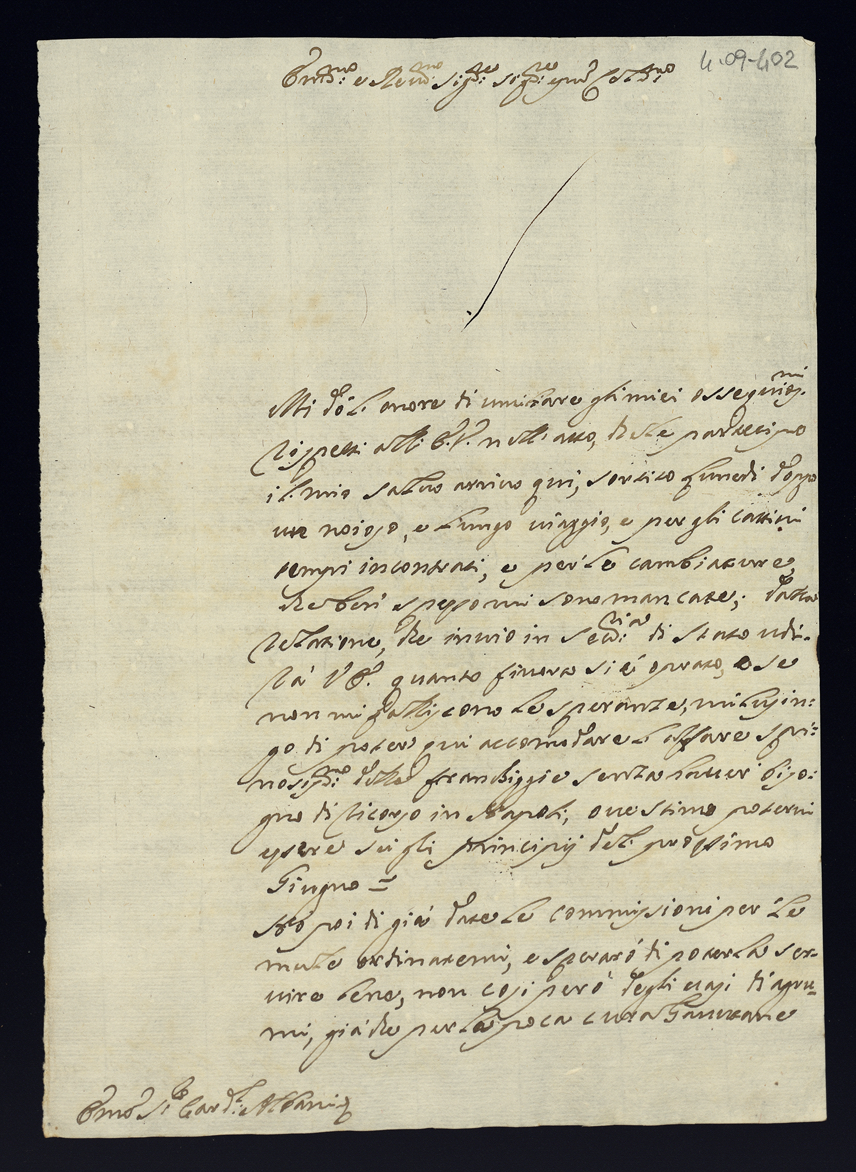 4-09-402
Em.mo e Rev.mo Sig.re Sig.re e P̃rone Col.mo
Mi dò l'onore di umiliare gli miei ossequiosi.mi
rispetti all' E.V. nell'atto, che le partecipo
il mio salvo arrivo qui, sortito Lunedì doppo
un noioso, e lungo viaggio, e per gli cattivi
tempi incontrati, e per le cambiature,
che ben spesso mi sono mancate; dalla
relazione, che invio in Seg.ria di Stato udi-
rà V.E. quanto finora si è oprato, e se
non mi falliscono le speranze, mi lusin:
go di poter qui accomodare l'affare spi:
nosiss.mo delle franchiggie senza haver biso:
gno di ricorso in Napoli, ove stimo potervi
essere su gli principij del prossimo
Giugno =
Hò poi di già date le commissioni per le
mule ordinatemi, e sperarò di poterla ser-
vire bene, non così però degli vasi d'agru-
mi, già che per la poca cura havutane
Em̃o Sig. Card.l Albani